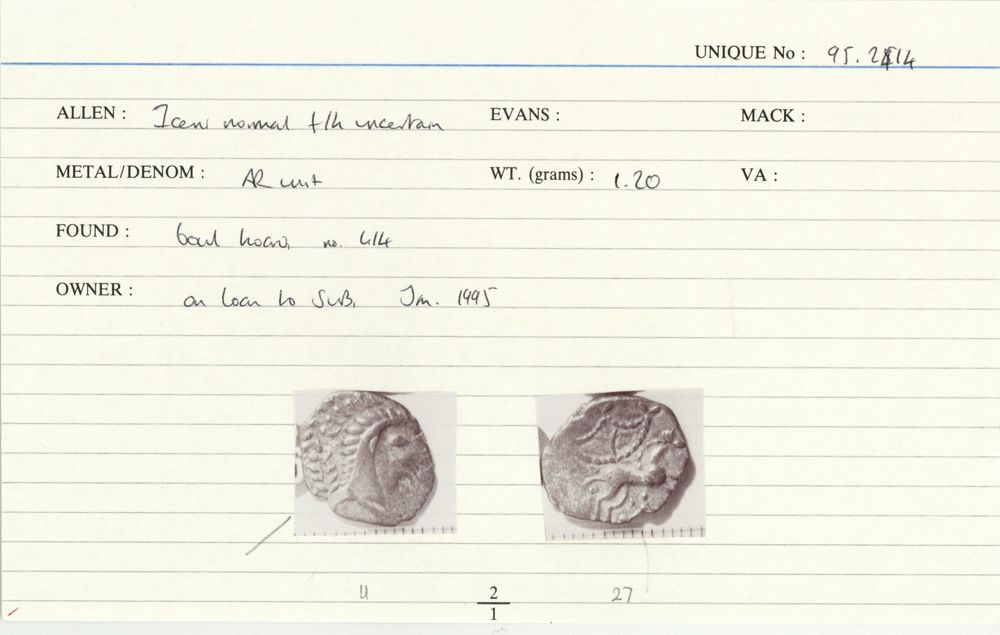 UNIQUE No : 95.2414
ALLEN : Iceni normal f/h uncertain EVANS : MACK :
METAL/DENOM : AR unit WT. (grams) : 1.20 VA :
FOUND : hoard, no. 414
OWNER : on loan to SUB, Jan. 1995
2
1
27